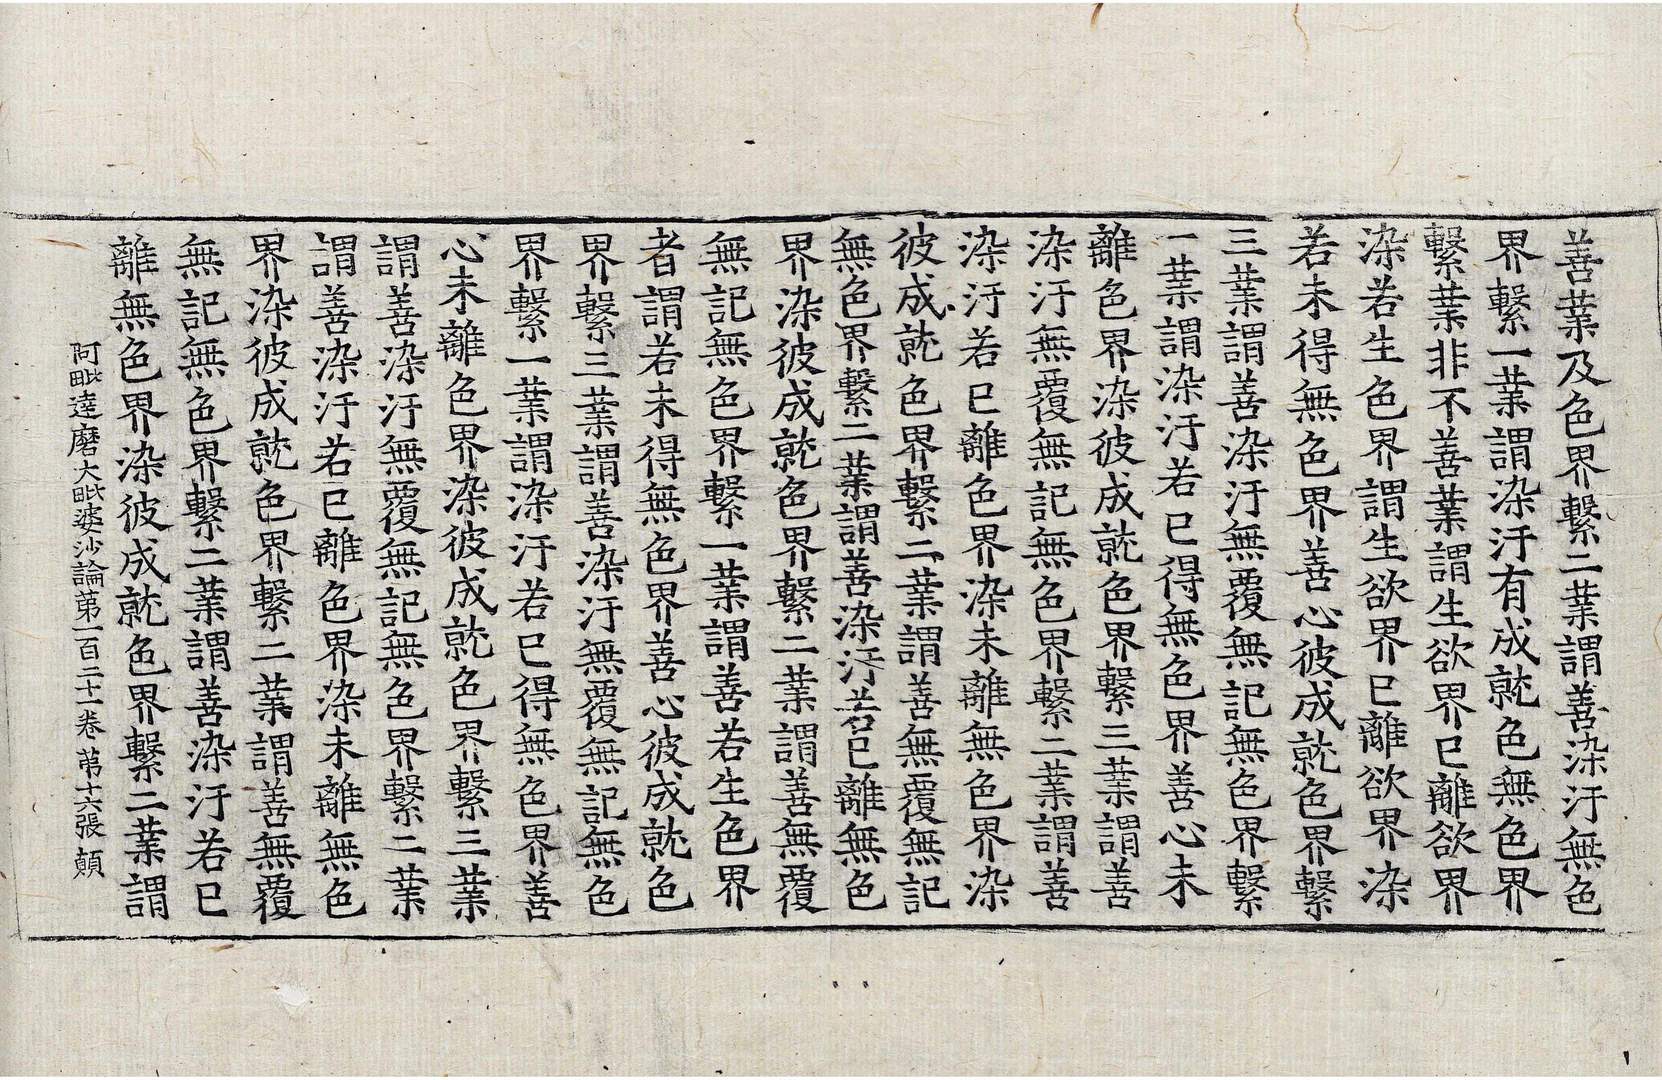 善業及色界繫二業謂善染汙無色
界繫一業謂染汙有成就色無色界
繫業非不善業謂生欲界已離欲界
染若生色界謂生欲界已離欲界染
若未得無色界善心彼成就色界繫
三業謂善染汙無覆無記無色界繫
一業謂染汙若已得無色界善心未
離色界染彼成就色界繫三業謂善
染汙無覆無記無色界繫二業謂善
染汙若已離色界染未離無色界染
彼成就色界繫二業謂善無覆無記
無色界繫二業謂善染汙若已離無色
界染彼成就色界繫二業謂善無覆
無記無色界繫一業謂善若生色界
者謂若未得無色界善心彼成就色
界繫三業謂善染汙無覆無記無色
界繫一業謂染汙若已得無色界善
心未離色界染彼成就色界繫三業
謂善染汙無覆無記無色界繫二業
謂善染汙若已離色界染未離無色
界染彼成就色界繫二業謂善無覆
無記無色界繫二業謂善染汙若已
離無色界染彼成就色界繫二業謂
阿毗達磨大毗婆沙論第一百二十一卷 第十六張 顛